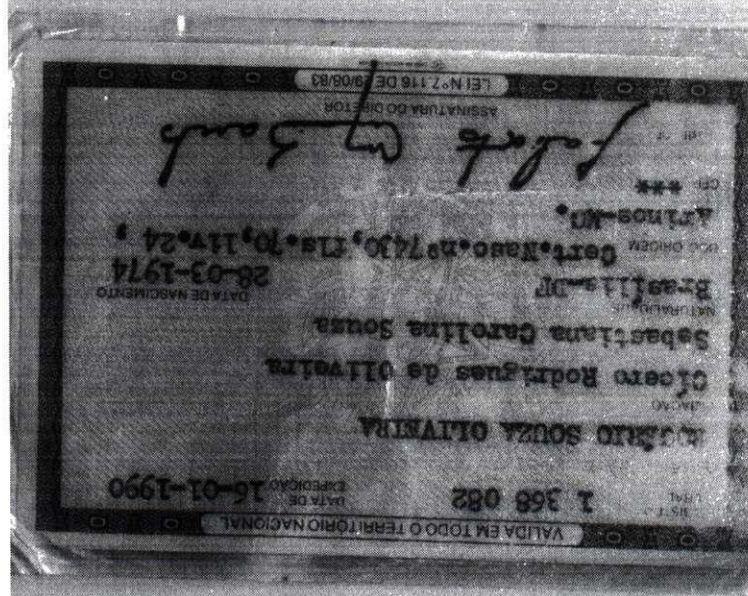 VALIDA EM TODO O TERRITÓRIO NACIONAL
1 368 082 DATA DE EXPEDIÇÃO 16-01-1990
ROGÉRIO SOUZA OLIVEIRA
Cícero Rodrigues de Oliveira
Sebastiana Carolina Sousa
NATURALIDADE DATA DE NASCIMENTO
Brasília-DF 28-03-1974
DOC ORIGEM Cert.Nasc.nº7430,fls.70,liv.24 ,
Arinos-MG.
CPF ***
ASSINATURA DO DIRETOR
LEI Nº 7.116 DE 29/08/83